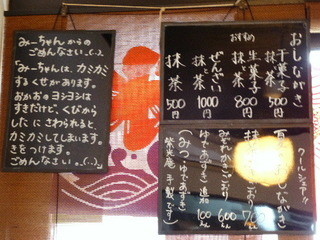 みーちゃんからの
ごめんなさい。(..)
「みーちゃんは、カミカミ
するくせがあります。
おかおのヨシヨシは
すきだけど、くびから
したにさわられると
カミカミしてしまいます。
きをつけます。
ごめんなさい。(..)
おしながき
おすすめ
干菓子と抹茶 500円
生菓子と抹茶 800円
ぜんざいと抹茶 1000円
抹茶 500円
クールシェア!!
しながき
みぞれかきごおり 600えん
ゆであずき追加 100えん
(みつ、ゆであずき
栄光庵手製です)